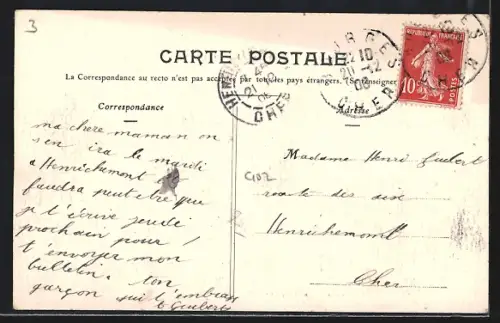 3
CARTE POSTALE
La Correspondance au recto n'est pas acceptée par tous les pays étrangers. (Se renseigner
Correspondance
Adresse
ma chere maman on
s'en ira le mardi
a Henrichemont
faudra peut etre que
je t'ecrive jeudi
prochain pour
t'envoyer mon
bulletin. ton
garçon qui t'embrasse
G Guibert
Madame Henri Guibert
route des aix
Henrichemont
Cher
C102
CHER
21
BOURGES
CHER
10
POSTES